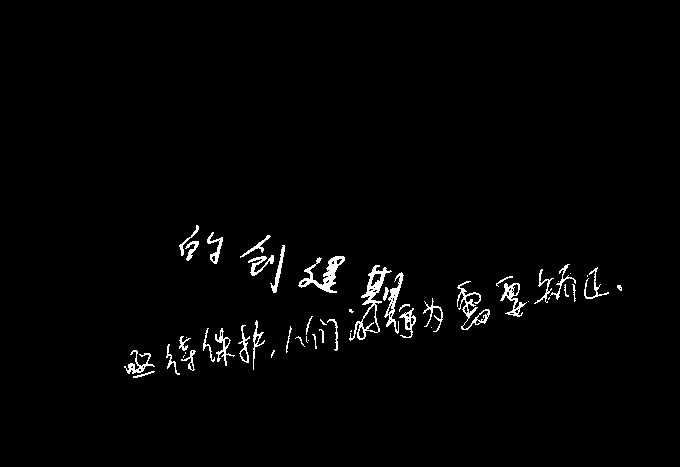 的创建期
亟待保护,人们游為需要矫正.